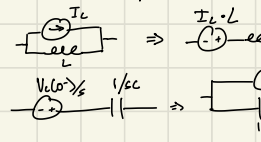 I_L ⇒ I_L · L
L
V_c(0⁻)/s 1/sC ⇒